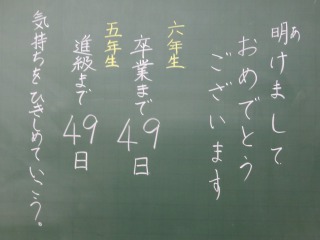 明けまして
あ
おめでとう
ございます
六年生
卒業まで
49日
五年生
進級まで
49日
気持ちをひきしめていこう。